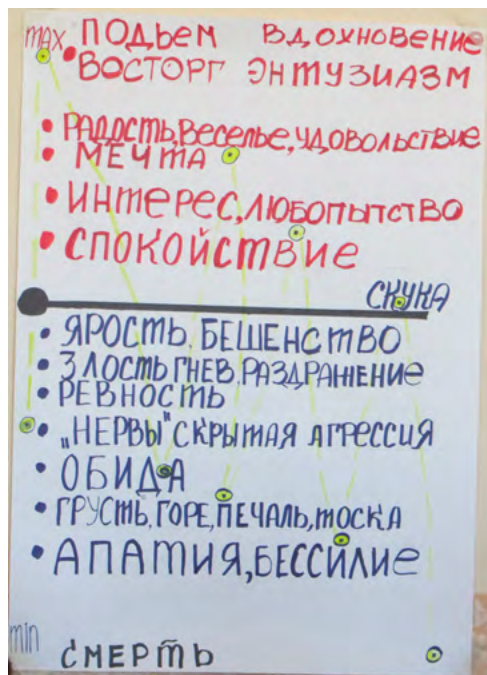 max ПОДЬЕМ ВДОХНОВЕНИЕ
• ВОСТОРГ ЭНТУЗИАЗМ
• РАДОСТЬ, ВЕСЕЛЬЕ, УДОВОЛЬСТВИЕ
• МЕЧТА
• ИНТЕРЕС, ЛЮБОПЫТСТВО
• СПОКОЙСТВИЕ
СКУКА
• ЯРОСТЬ, БЕШЕНСТВО
• ЗЛОСТЬ ГНЕВ, РАЗДРАЖЕНИЕ
• РЕВНОСТЬ
• „НЕРВЫ" СКРЫТАЯ АГРЕССИЯ
• ОБИДА
• ГРУСТЬ, ГОРЕ, ПЕЧАЛЬ, ТОСКА
• АПАТИЯ, БЕССИЛИЕ
min СМЕРТЬ